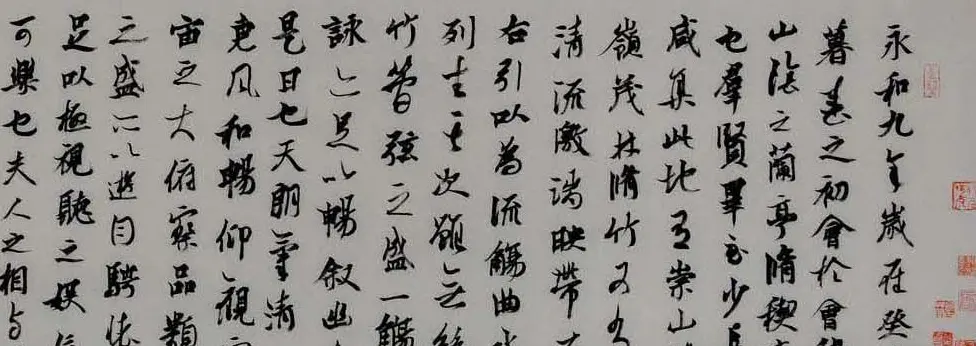 永和九年歲在癸
暮春之初會於會
山陰之蘭亭脩禊
也羣賢畢至少長
咸集此地有崇山
嶺茂林脩竹又有
清流激湍映帶
右引以為流觴曲水
列坐其次雖無絲
竹管弦之盛一觴
詠亦足以暢叙幽
是日也天朗氣清
惠風和暢仰觀
宙之大俯察品類
之盛所以遊目騁懷
足以極視聽之娛信
可樂也夫人之相與